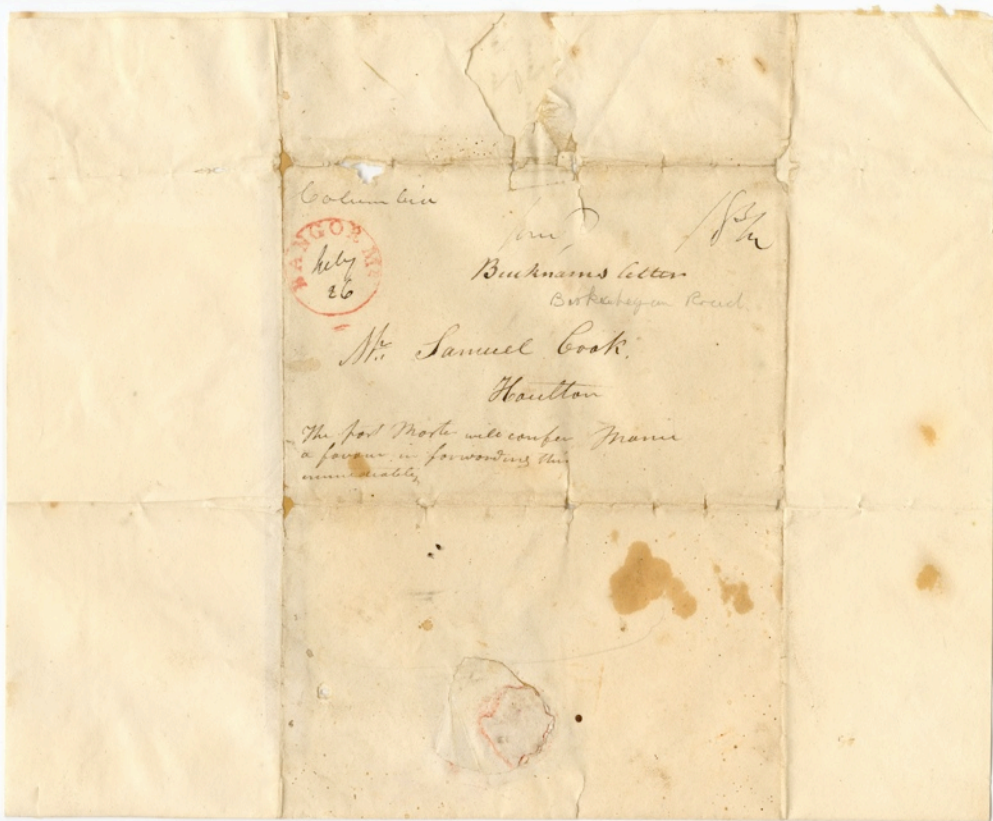 Columbia
BANGOR Me
July
26
18 3/4
Bucknams letter
Road
Mr. Samuel Cook.
Houlton
Maine
The post Master will confer
a favour in forwarding this
immediately